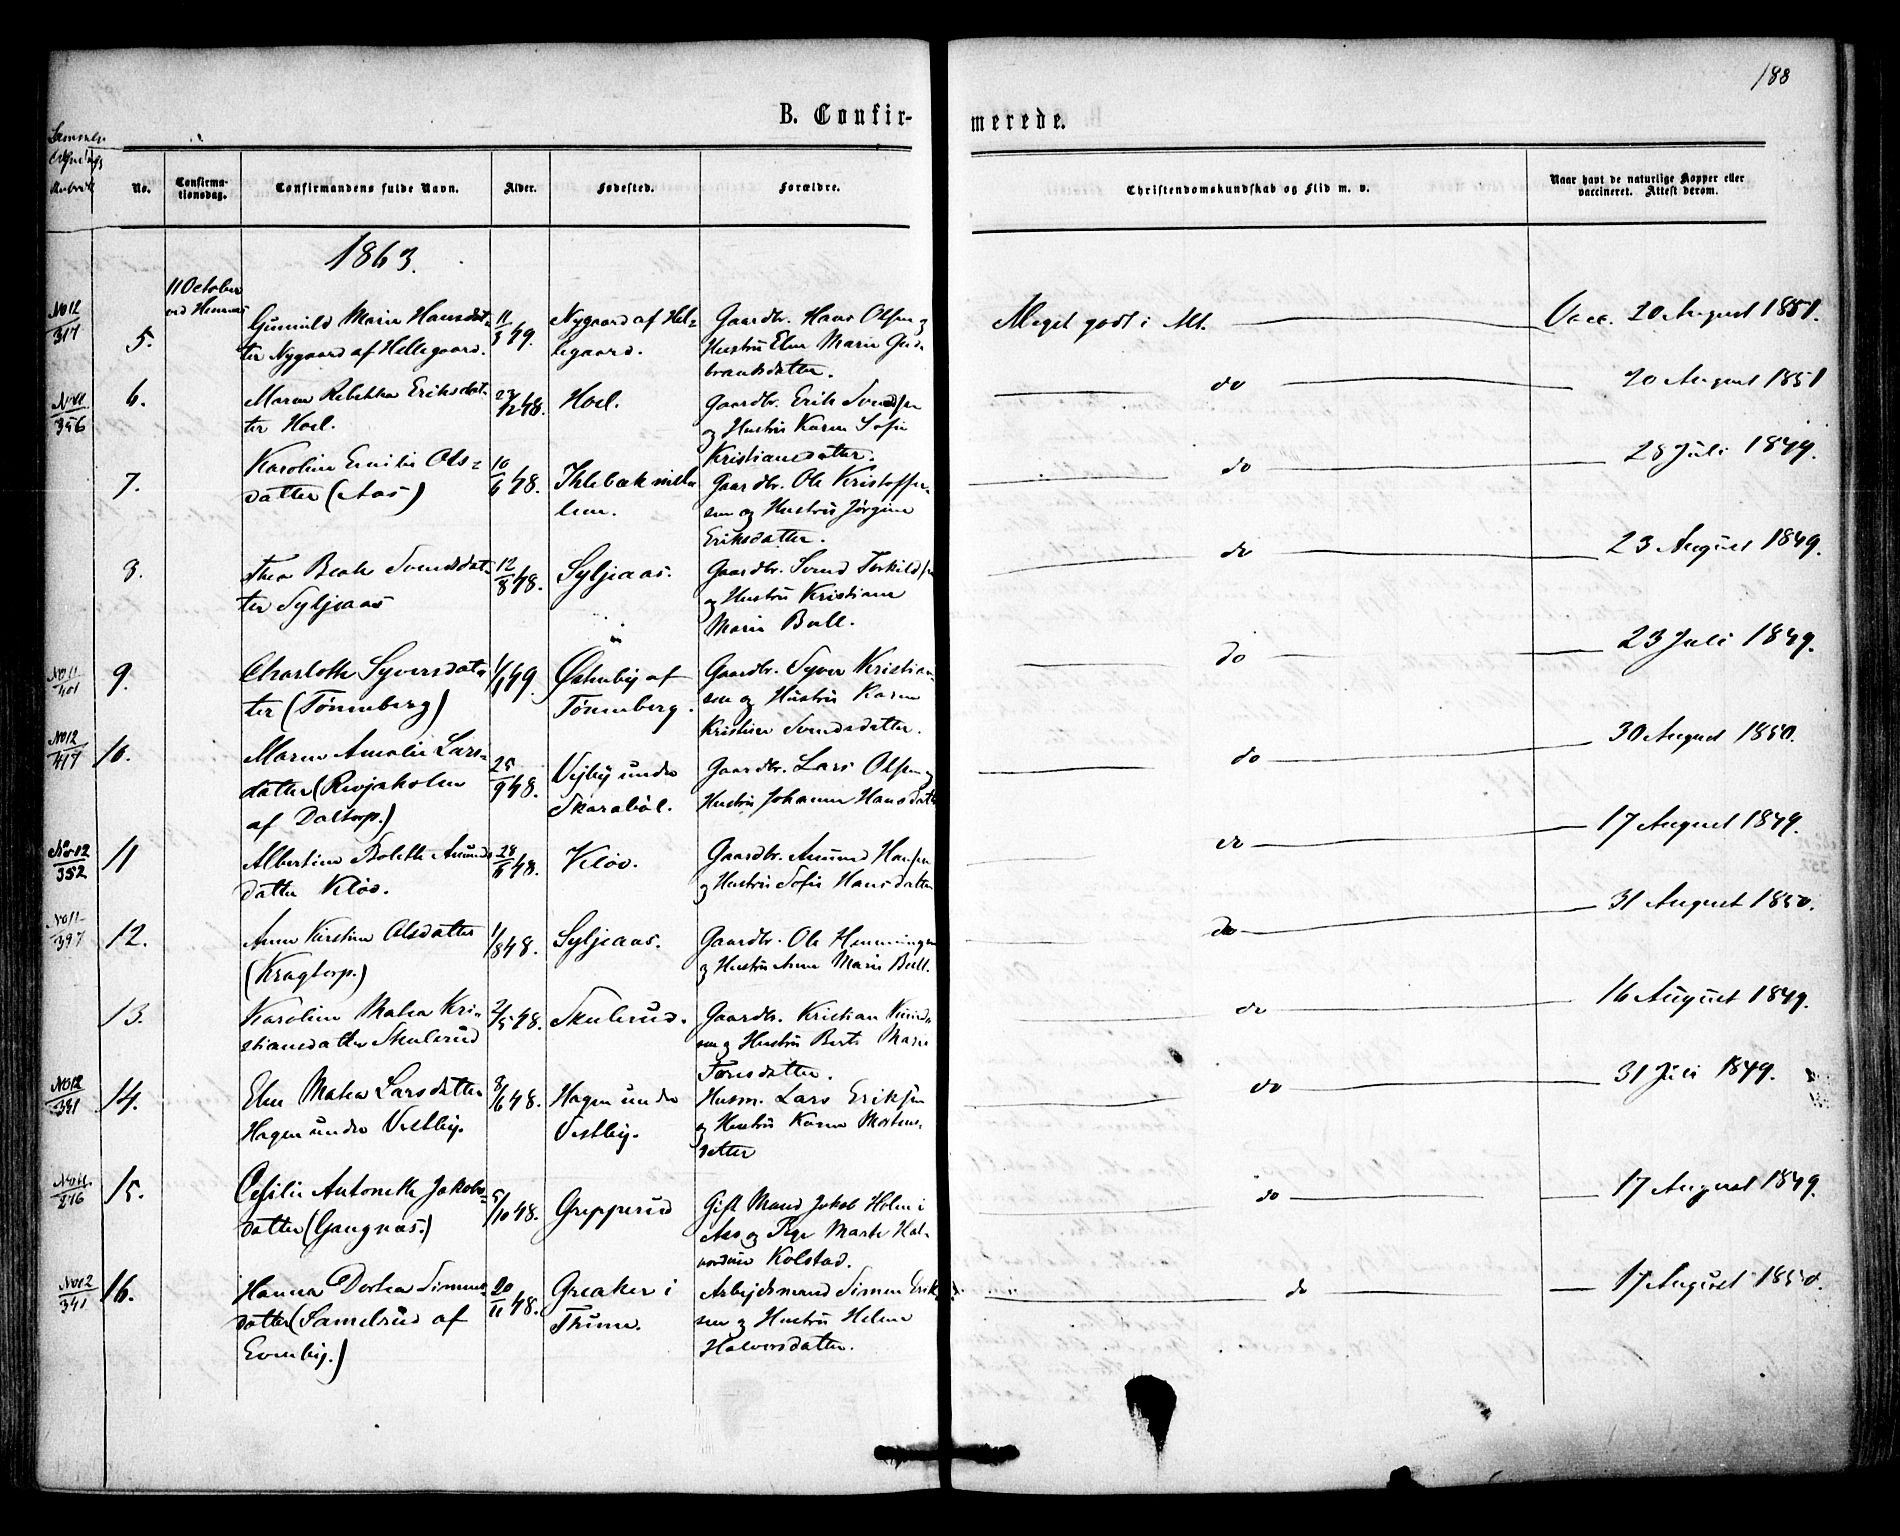 188
B. Confir-
merede.
No.
Confirma-
tionsdag.
Confirmandens fulde Navn.
Alder.
Fødested.
Forældre.
Christendomskundskab og Flid m. v.
Naar havt de naturlige Kopper eller
vaccineret. Attest derom.
1863.
11 October
No 12
317
5.
Gunnild Marie Hansdat-
ter Nygaard af Hellegaard.
11/3 49.
Nygaard af Hel-
legaard.
Gaardbr. Hans Olsen og
Hustru Elen Marie Gud-
brandsdatter.
Meget godt i Alt.
Vacc. 20 August 1851.
No 11
356
6.
Maren Rebekka Eriksdat-
ter Hoel.
24/12 48.
Hoel.
Gaardbr. Erik Svendsen
og Hustru Karen Sofie
Kristiansdatter.
do
20 August 1851
7.
Karoline Emilie Ols-
datter (Aas)
10/6 48.
Gaardbr. Ole Kristoffer-
sen og Hustru Jørgine
Eriksdatter.
do
28 Juli 1849.
8.
Thea Beate Svendsdat-
ter Syljeaas
12/8 48.
Syljeaas.
Gaardbr. Svend Torkildsen
og Hustru Kristiane
Marie Bull.
do
23 August 1849.
No 11
401
9.
Charlotte Syversdat-
ter (Tønneberg)
1/1 49.
Østenby af
Tønneberg.
Gaardbr. Syver Kristian-
sen og Hustru Karen
Kristine Svendsdatter.
do
23 Juli 1849.
No 12
417
10.
Maren Amalie Lars-
datter (Rivjeholen
af Daltorp.)
25/9 48.
Vejby under
Skarabøl.
Gaardbr. Lars Olsen og
Hustru Johanne Hansdatter
do
30 August 1850.
No 12
352
11
Albertine Bolette Amunds-
datter Kløv.
28/6 48.
Kløv.
Gaardbr. Amund Hansen
og Hustru Sofie Hansdatter
do
17 August 1849.
No 11
397
12.
Anne Kirstine Olsdatter
(Kragtorp.)
1/8 48.
Syljeaas.
Gaardbr. Ole Henningsen
og Hustru Anne Marie Bull.
do
31 August 1850.
13.
Karoline Mathea Kri-
stiansdatter Skulerud
2/5 48.
Skulerud.
Gaardbr. Kristian
sen og Hustru Berte Marie
Toresdatter.
do
16 August 1849.
No 12
331
14.
Elen Mathea Larsdatter
Hagen under Vestby.
8/6 48.
Hagen under
Vestby.
Husm. Lars Eriksen
og Hustru Karen Mortens-
datter
do
31 Juli 1849.
No 11.
276
15.
Cesilie Antonette Jakobs-
datter (Gangnæs.)
5/10 48.
Grepperud
Gift Mand Jakob Holm i
Aas og Pige Marte Hal-
vorsdatter Kolstad.
do
17 August 1849.
No 12
341
16.
Hanna Dortea Simens-
datter (Samelrud af
Evenby.)
20/11 48.
Greaker i
Thune.
Arbejdsmand Simen Erik-
sen og Hustru Helene
Halvorsdatter.
do
17 August 1850.